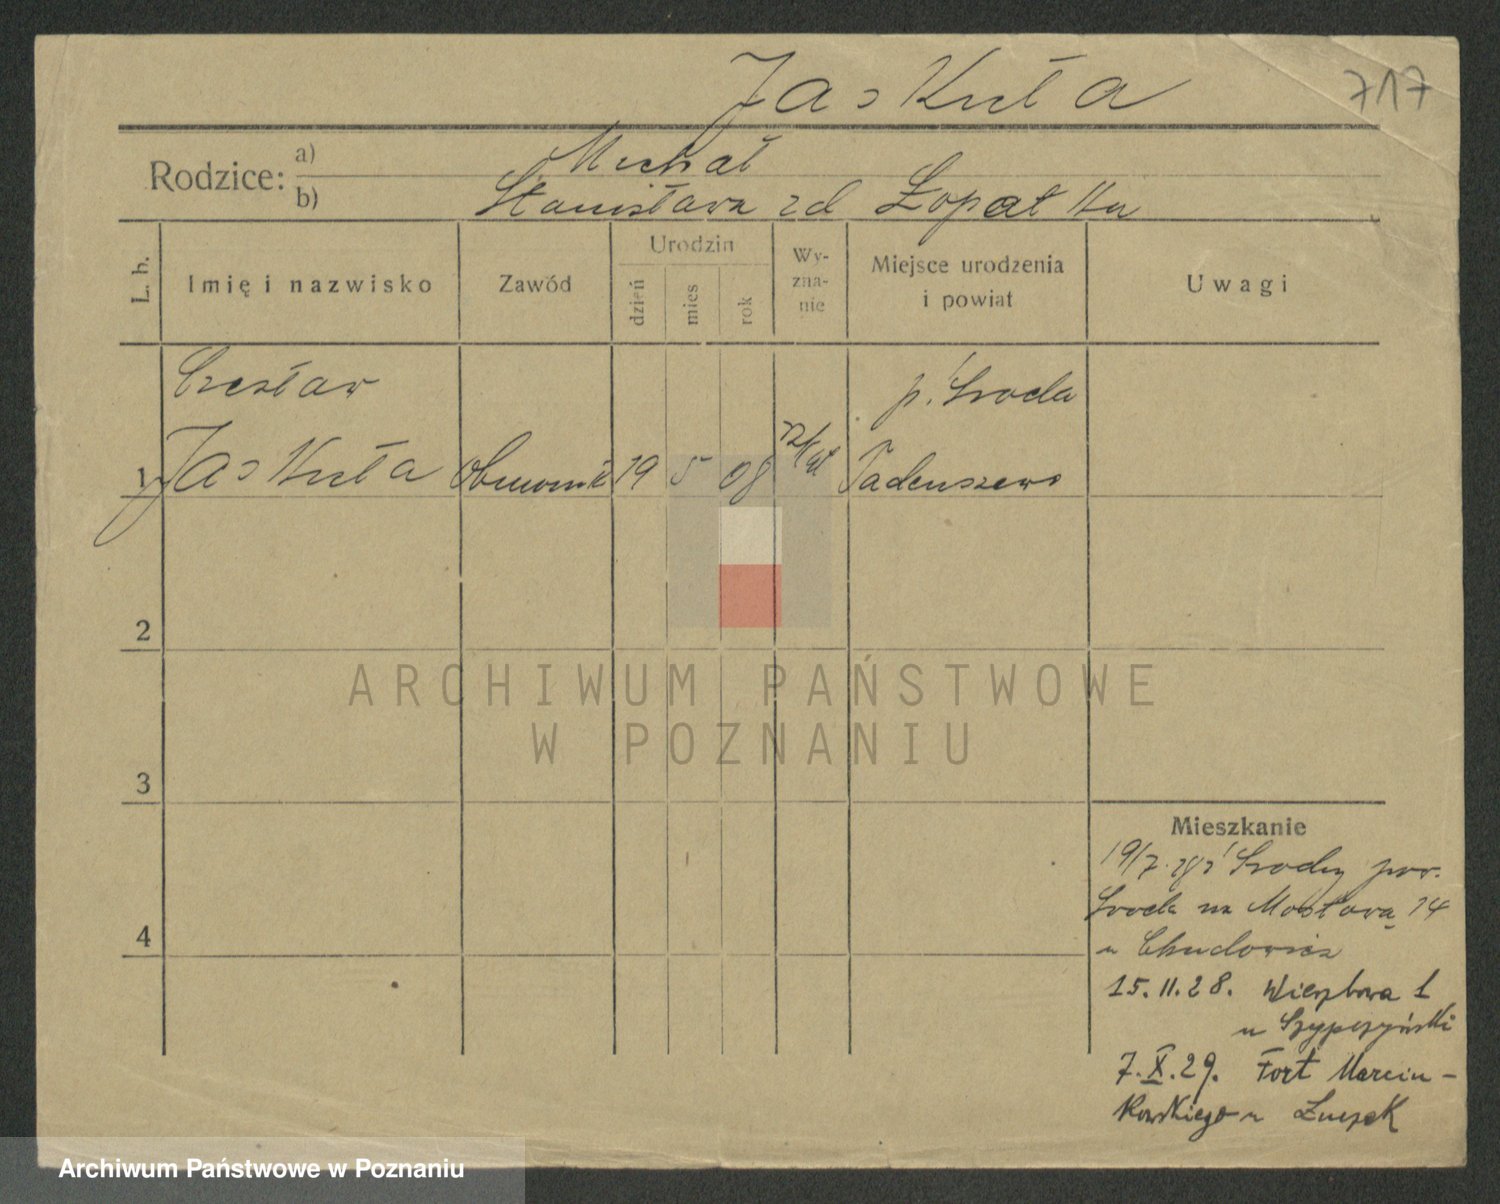 717
Jaskuła
Rodzice:
a) Michał
b) Stanisława zd Łopatka
L. b.
Imię i nazwisko
Zawód
Urodzin
dzień
mies
rok
Wy-
zna-
nie
Miejsce urodzenia
i powiat
Uwagi
Czesław
p. Środa
1 Jaskuła 19 5 08 rz/kat Tadeuszewo
2
3
4
ARCHIWUM PAŃSTWOWE
W POZNANIU
Mieszkanie
19/7. 28 z Środy pow.
Środa na Mostową 14
u Chudowicz
15.11.28. Wierzbowa 1
u Szypczyński
7.X.29. Fort Marcin-
kowskiego u
Archiwum Państwowe w Poznaniu